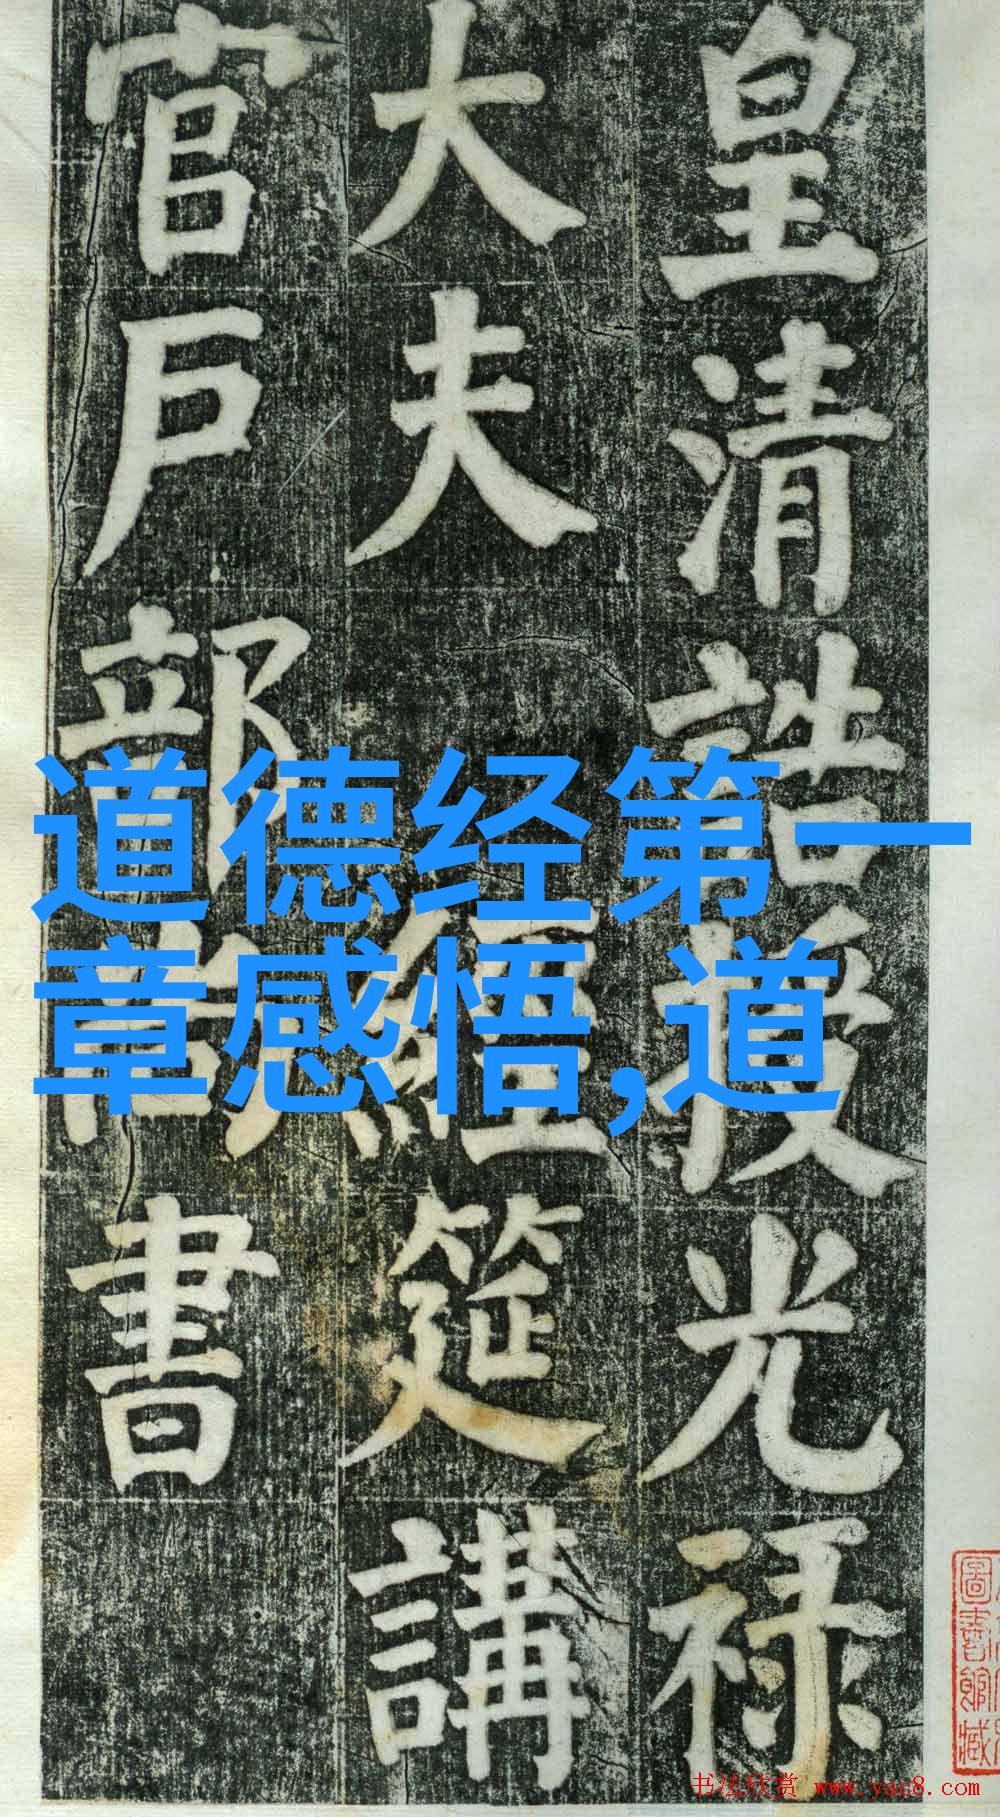 皇清誥授光禄
大夫經筵講
官戸部書
道德经第一
章感悟,道
圖書館藏
书法欣赏 www.yac8.com